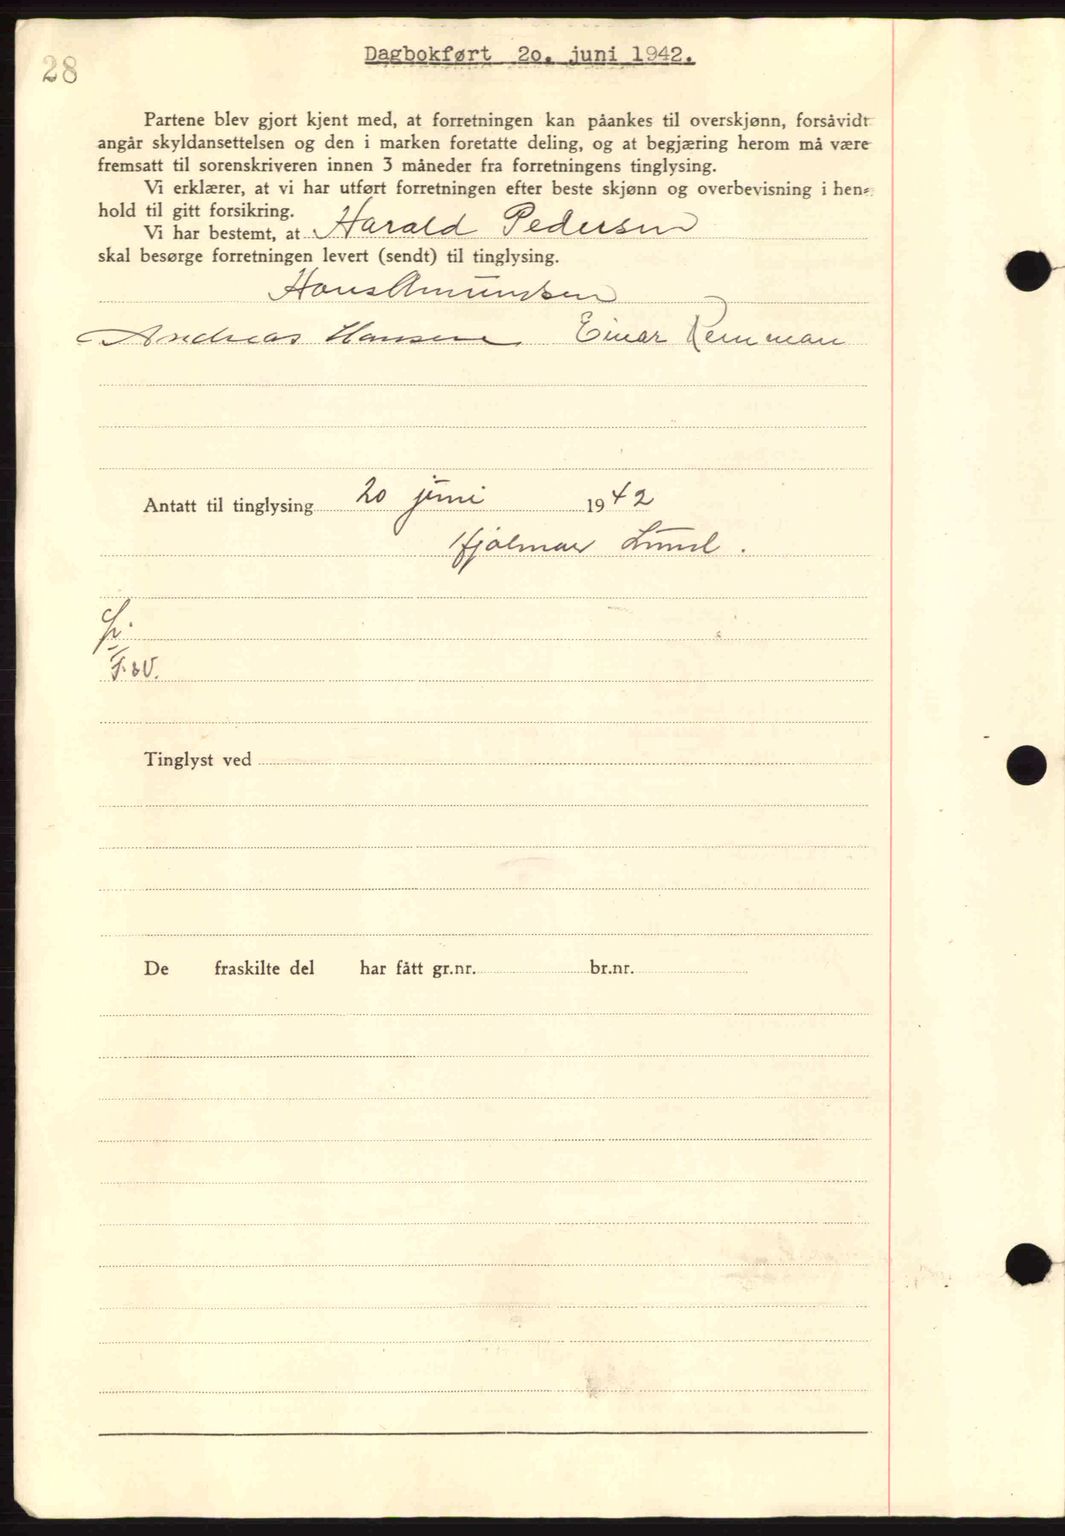 28
Dagbokført 20. juni 1942.
Partene blev gjort kjent med, at forretningen kan påankes til overskjønn, forsåvidt
angår skyldansettelsen og den i marken foretatte deling, og at begjæring herom må være
fremsatt til sorenskriveren innen 3 måneder fra forretningens tinglysing.
Vi erklærer, at vi har utført forretningen efter beste skjønn og overbevisning i hen-
hold til gitt forsikring.
Vi har bestemt, at Harald Pedersen
skal besørge forretningen levert (sendt) til tinglysing.
Hans Amundsen
Andreas Hansen Einar Remman
Antatt til tinglysing 20 juni 1942
Hjalmar Lund.
Tinglyst ved
De fraskilte del har fått gr.nr. br.nr.